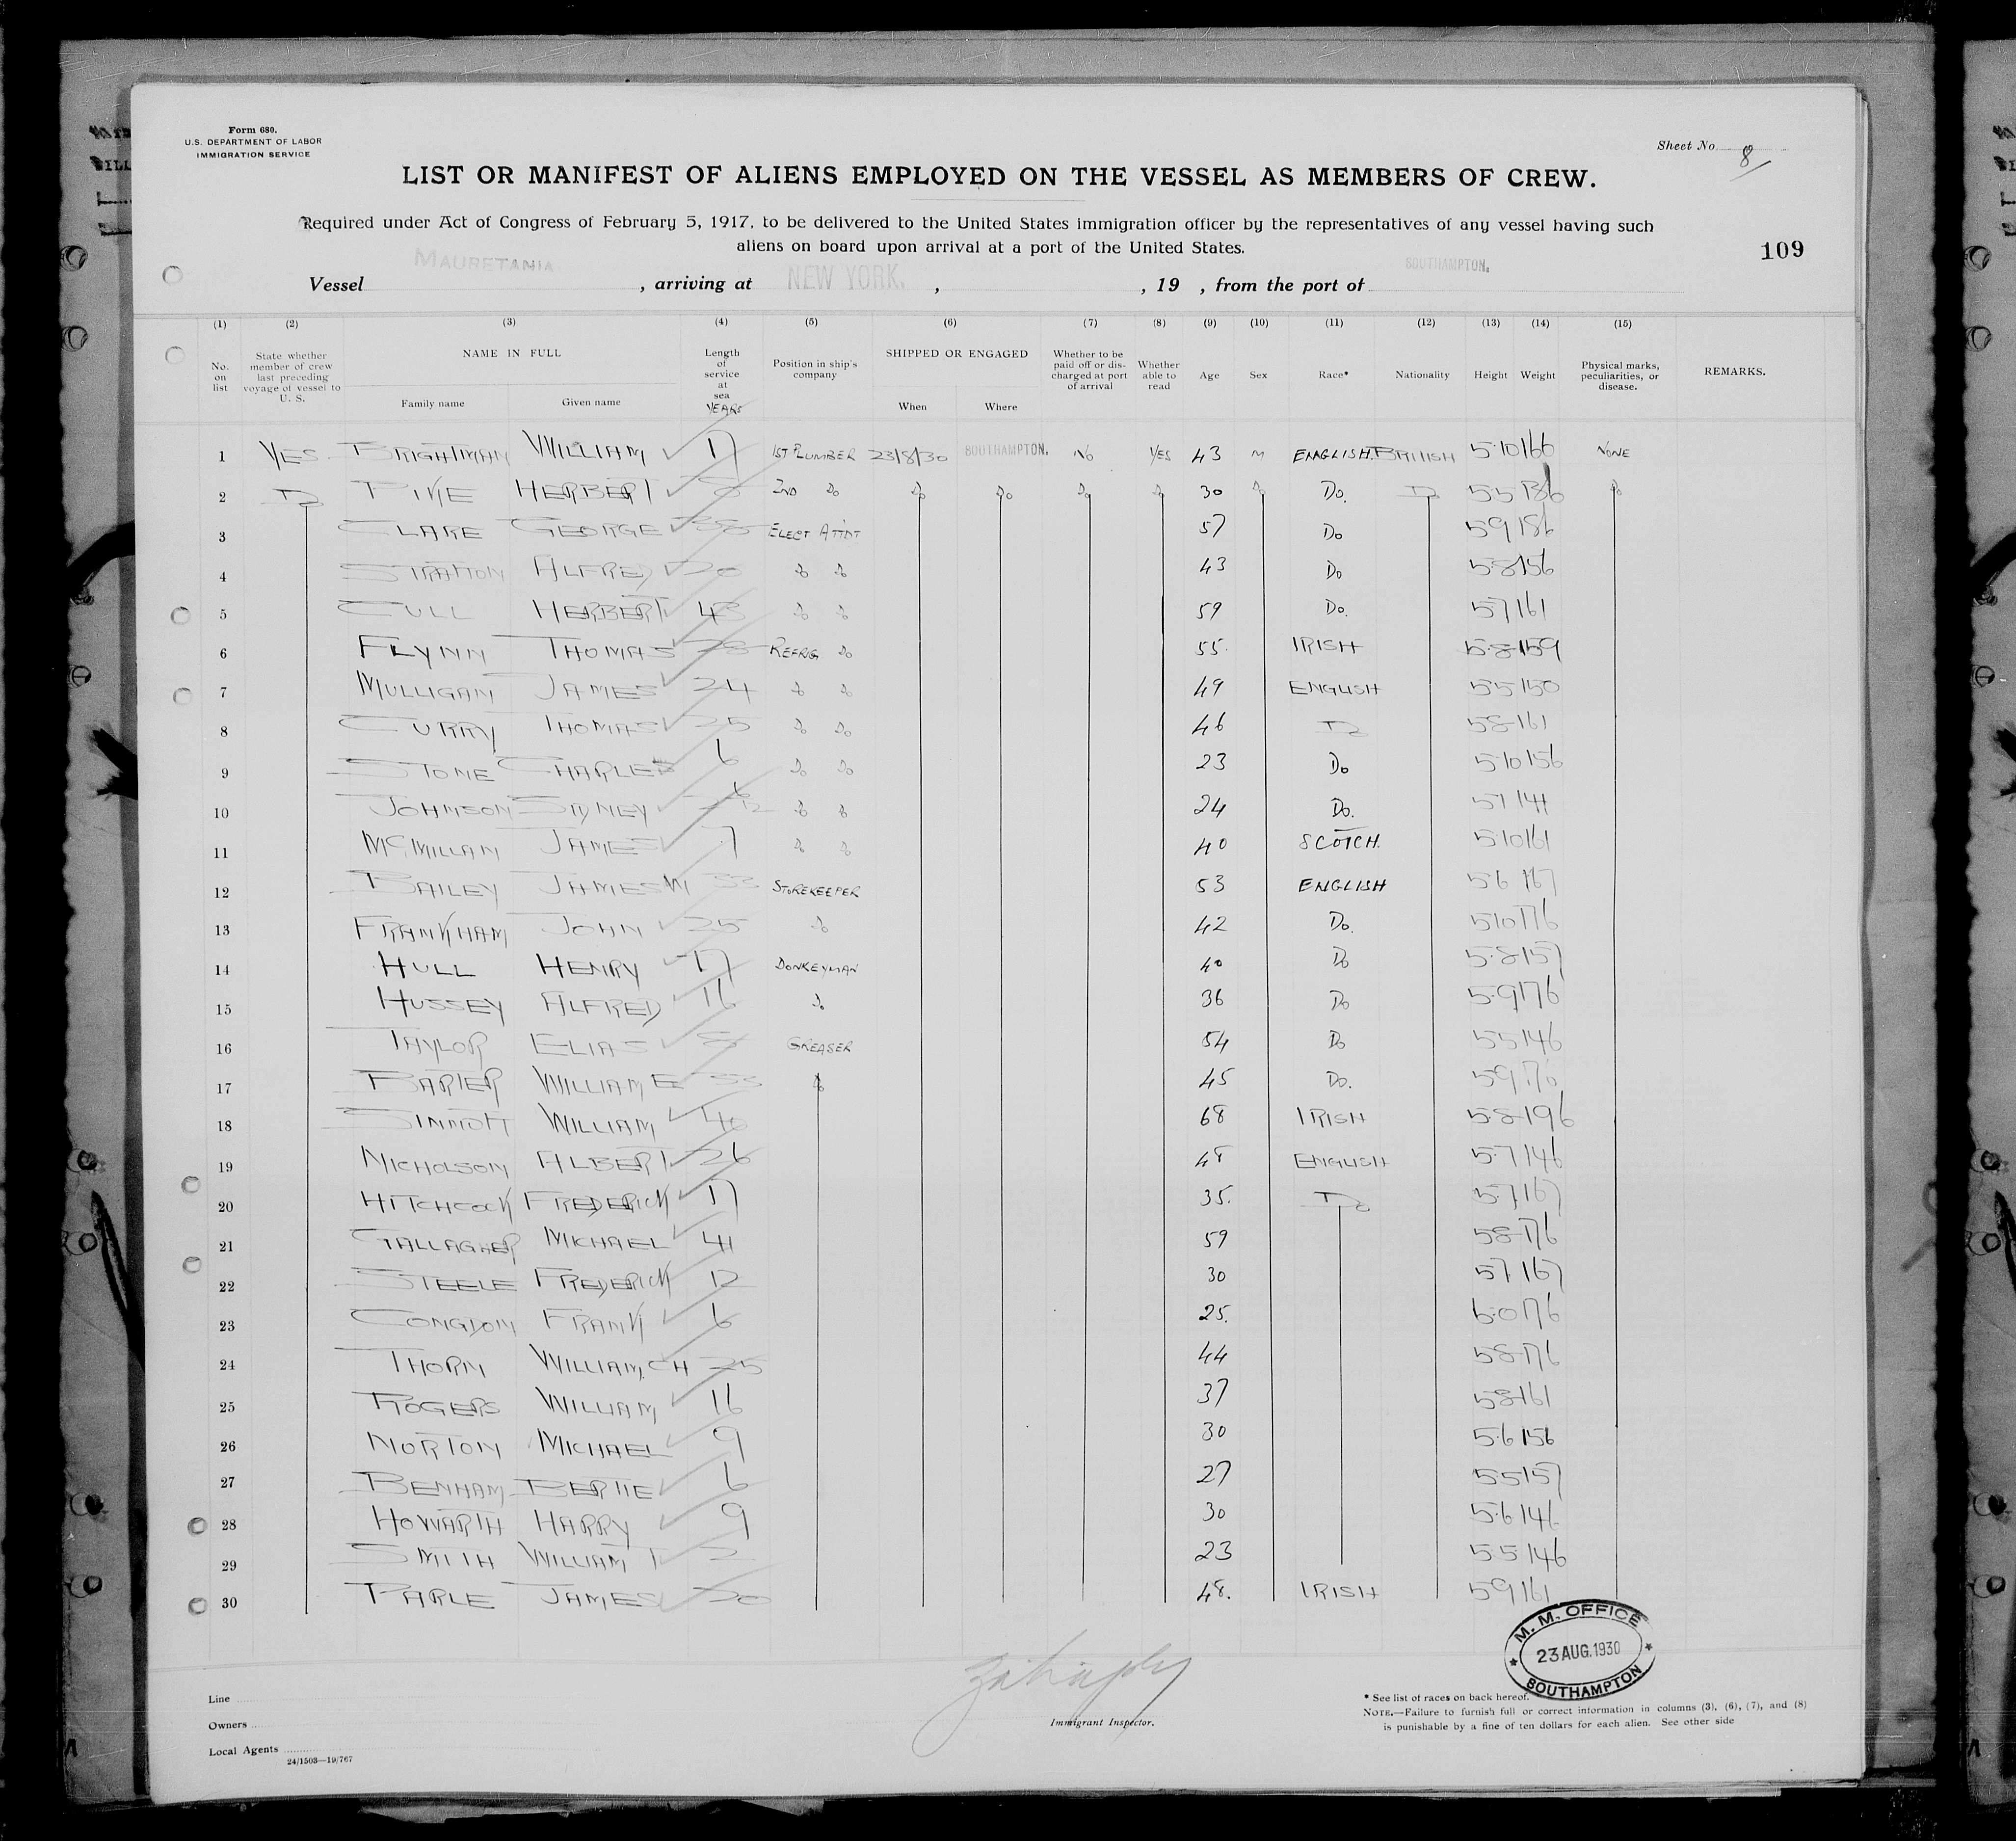 Form 680.
U.S. DEPARTMENT OF LABOR
IMMIGRATION SERVICE
Sheet No. 8
LIST OR MANIFEST OF ALIENS EMPLOYED ON THE VESSEL AS MEMBERS OF CREW.
Required under Act of Congress of February 5, 1917, to be delivered to the United States immigration officer by the representatives of any vessel having such
aliens on board upon arrival at a port of the United States.
109
Vessel MAURETANIA, arriving at NEW YORK. , , 19 , from the port of SOUTHAMPTON.
(1) (2) (3) (4) (5) (6) (7) (8) (9) (10) (11) (12) (13) (14) (15)
No. on list State whether member of crew last preceding voyage of vessel to U. S. NAME IN FULL Family name Given name Length of service at sea YEARS Position in ship's company SHIPPED OR ENGAGED When Where Whether to be paid off or discharged at port of arrival Whether able to read Age Sex Race* Nationality Height Weight Physical marks, peculiarities, or disease. REMARKS.
1 YES BRIGHTMAN WILLIAM 17 1ST PLUMBER 23/8/30 SOUTHAMPTON. NO YES 43 M ENGLISH. BRITISH 5·10 166 NONE
2 Do PIKE HERBERT 2ND Do Do Do Do Do 30 Do Do. Do 5 5 136 Do
3 CLARE GEORGE ELECT ATTDT 57 Do 5 9 186
4 STRATTON ALFRED 20 Do Do 43 Do 5·8 156
5 CULL HERBERT 43 Do Do 59 Do. 5·7 161
6 FLYNN THOMAS 28 REFRIG Do 55. IRISH 5·8 159
7 MULLIGAN JAMES 24 Do Do 49 ENGLISH 5 5 150
8 CURRY THOMAS 25 Do Do 46 Do 5 8 161
9 STONE CHARLES 6 Do Do 23 Do 5 10 156
10 JOHNSON SIDNEY Do Do 24 Do. 5 7 141
11 MCMILLAN JAMES 7 Do Do 40 SCOTCH. 5 10 161
12 BAILEY JAMES W 33 STOREKEEPER 53 ENGLISH 5 6 167
13 FRANKHAM JOHN 25 Do 42 Do. 5 10 176
14 HULL HENRY 17 DONKEYMAN 40 Do 5·8 157
15 HUSSEY ALFRED 16 Do 36 Do 5·9 176
16 TAYLOR ELIAS GREASER 54 Do 5 5 146
17 WILLIAM E 33 Do 45 Do. 5 9 176
18 SINNOTT WILLIAM 40 68 IRISH 5·8 196
19 NICHOLSON ALBERT 26 48 ENGLISH 5·7 146
20 HITCHCOCK FREDERICK 17 35. Do 5·7 167
21 GALLAGHER MICHAEL 41 59 5 8 176
22 STEELE FREDERICK 12 30 5 7 167
23 CONGDON FRANK 6 25. 6·0 176
24 THORN WILLIAM. CH 25 44 5 8 176
25 ROGERS WILLIAM 16 37 5 8 161
26 NORTON MICHAEL 9 30 5·6 156
27 BENHAM BERTIE 6 27 5 5 157
28 HOWARTH HARRY 9 30 5·6 146
29 SMITH WILLIAM T 2 23 5 5 146
30 PARLE JAMES 20 48. IRISH 5 9 161
M. M. OFFICE
23 AUG. 1930
SOUTHAMPTON
Line
Owners
Local Agents
24/1503—19/767
Immigrant Inspector.
* See list of races on back hereof.
NOTE.—Failure to furnish full or correct information in columns (3), (6), (7), and (8)
is punishable by a fine of ten dollars for each alien. See other side